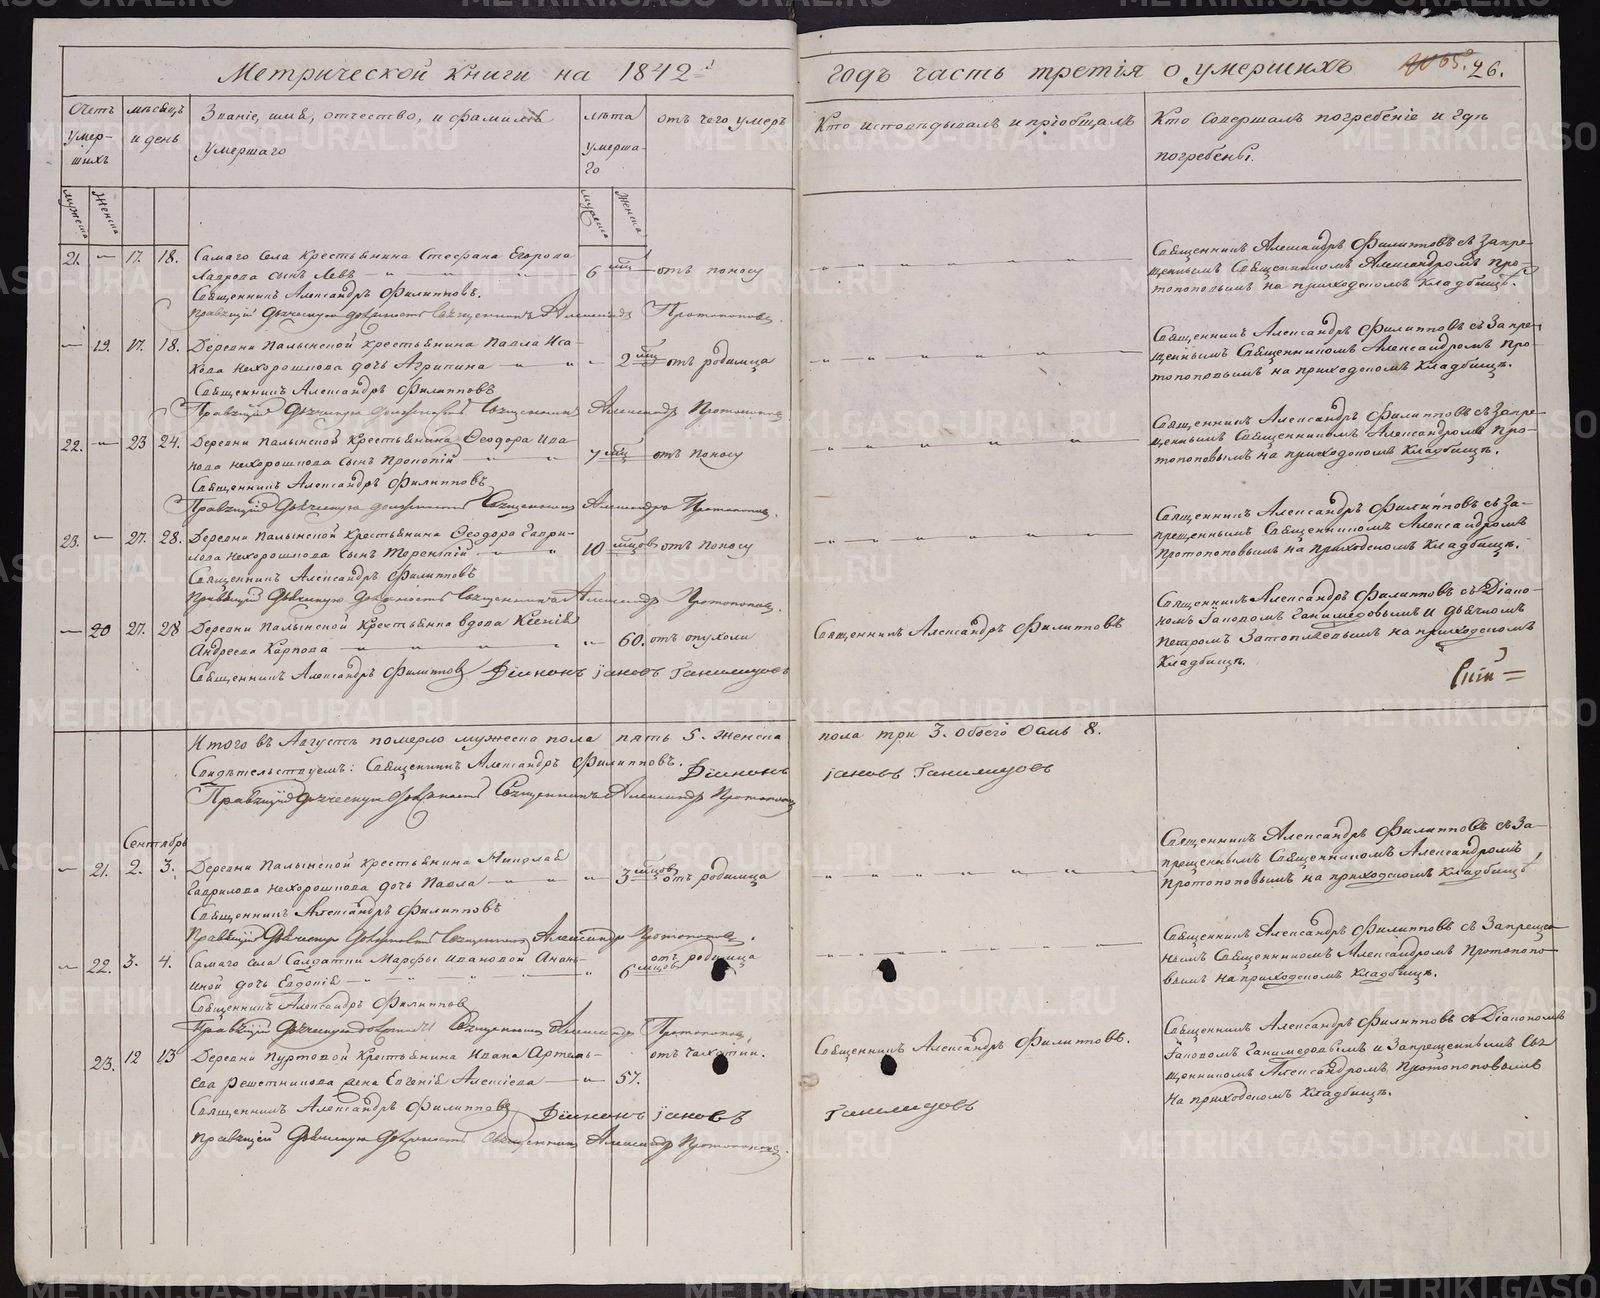 Метрической книги на 1842й
годъ часть третія о умершихъ
26.
Счетъ умер-шихъ
мѣсяцъ и день
Званіе, имя, отчество, и фамилія
умершаго
лѣта умерша-го
отъ чего умеръ
Кто исповѣдывалъ и пріобщалъ
Кто совершалъ погребеніе и гдѣ
погребены.
мужеска
женска
мужеска
женска
21. — 17. 18. Самаго села крестьянина Стефана Егорова
сынъ Левъ 6 мцъ отъ поносу
Священникъ Александръ Филипповъ съ запре-
щеннымъ Священникомъ Александромъ Про-
топоповымъ на приходскомъ кладбищѣ.
Священникъ Александръ Филипповъ.
Правящій дьяческую должность Священникъ Александръ Протопоповъ.
— 19. 17. 18. Деревни Палынской крестьянина Павла Иса-
кова Нехорошкова дочь Агрипина 2 мцъ отъ родимца
Священникъ Александръ Филипповъ съ запре-
щеннымъ Священникомъ Александромъ Про-
топоповымъ на приходскомъ кладбищѣ.
Священникъ Александръ Филипповъ
Правящій дьяческую должность Священникъ Александръ Протопоповъ
22. — 23 24. Деревни Палынской крестьянина Ѳеодора Ива-
нова Нехорошкова сынъ Прокопій 7 мцъ отъ поносу
Священникъ Александръ Филипповъ съ запре-
щеннымъ Священникомъ Александромъ Про-
топоповымъ на приходскомъ кладбищѣ.
Священникъ Александръ Филипповъ
Правящій дьяческую должность Священникъ Александръ Протопоповъ.
23. — 27. 28. Деревни Палынской крестьянина Ѳеодора Гаври-
лова Нехорошкова сынъ Терентій 10 мцовъ отъ поносу
Священникъ Александръ Филипповъ съ за-
прещеннымъ Священникомъ Александромъ
Протопоповымъ на приходскомъ кладбищѣ.
Священникъ Александръ Филипповъ
Правящій дьяческую должность Священникъ Александръ Протопоповъ.
— 20 27. 28 Деревни Палынской крестьянка вдова Ксенія
Андреева Карпова 60. отъ опухоли
Священникъ Александръ Филипповъ
Священникъ Александръ Филипповъ съ Діако-
номъ Іаковомъ Ганимедовымъ и дьячкомъ
Петромъ на приходскомъ
кладбищѣ.
Священникъ Александръ Филипповъ Діаконъ Іаковъ Ганимедовъ
Итого въ Августѣ померло мужеска пола пять 5. женска
пола три 3. обоего осмь 8.
Свидѣтельствуемъ: Священникъ Александръ Филипповъ. Діаконъ
Іаковъ Ганимедовъ
Правящій дьяческую должность Священникъ Александръ Протопоповъ
Сентябрь
— 21. 2. 3. Деревни Палынской крестьянина Николая
Гаврилова Нехорошкова дочь Павла 3 мцовъ отъ родимца
Священникъ Александръ Филипповъ съ за-
прещеннымъ Священникомъ Александромъ
Протопоповымъ на приходскомъ кладбищѣ
Священникъ Александръ Филипповъ
Правящій дьяческую должность Священникъ Александръ Протопоповъ.
— 22. 3. 4. Самаго села Солдатки Марфы Ивановой
дочь Евдокія 6 мцовъ отъ родимца
Священникъ Александръ Филипповъ съ запрещен-
нымъ Священникомъ Александромъ Протопопо-
вымъ на приходскомъ кладбищѣ.
Священникъ Александръ Филипповъ
Правящій дьяческую должность Священникъ Александръ Протопоповъ
23. 12 13 Деревни Пуртовой крестьянина Ивана Артемь-
ева Решетникова жена Евгенія Алексіева 57. отъ чахотки.
Священникъ Александръ Филипповъ.
Священникъ Александръ Филипповъ съ Діакономъ
Іаковомъ Ганимедовымъ и запрещеннымъ Свя-
щенникомъ Александромъ Протопоповымъ
на приходскомъ кладбищѣ.
Священникъ Александръ Филипповъ Діаконъ Іаковъ
Ганимедовъ
Правящій дьяческую должность Священникъ Александръ Протопоповъ.
METRIKI.GASO-URAL.RU